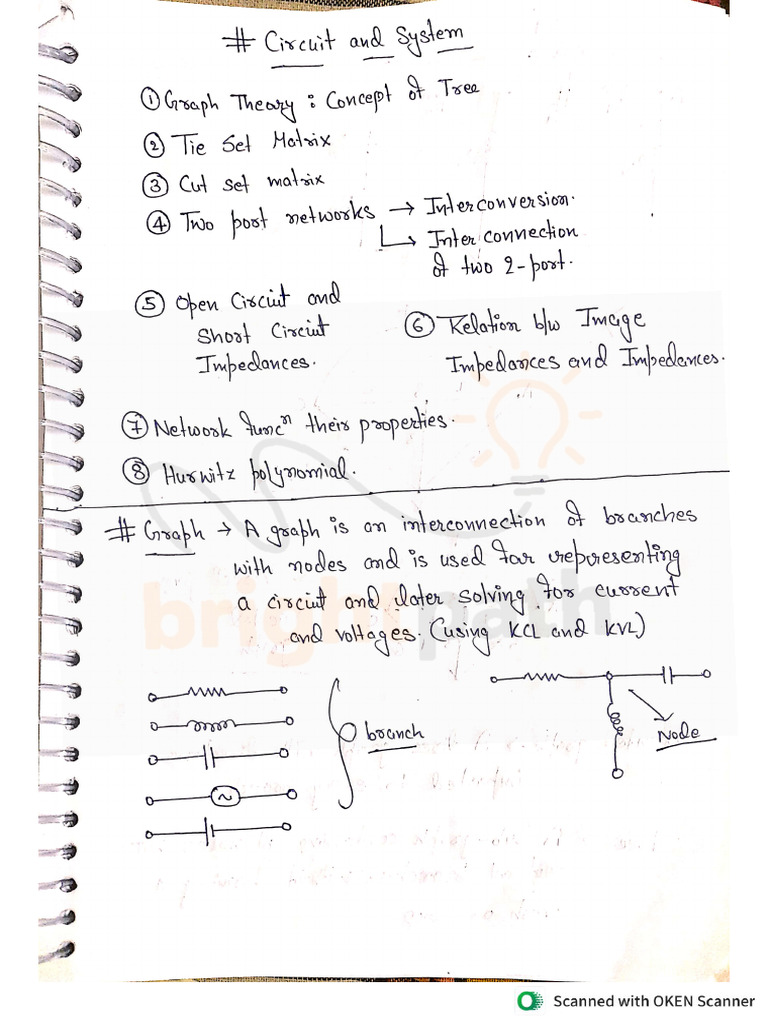 # Circuit and System
① Graph Theory : Concept of Tree
② Tie Set Matrix
③ Cut set matrix
④ Two port networks → Interconversion.
↳ Inter connection
of two 2-port.
⑤ Open Circuit and
Short Circuit
Impedances.
⑥ Relation b/w Image
Impedances and Impedances.
⑦ Network funcⁿ their properties.
⑧ Hurwitz polynomial.
# Graph → A graph is an interconnection of branches
with nodes and is used for representing
a circuit and later solving for current
and voltages. (using KCL and KVL)
branch
Node
brightpath
Scanned with OKEN Scanner